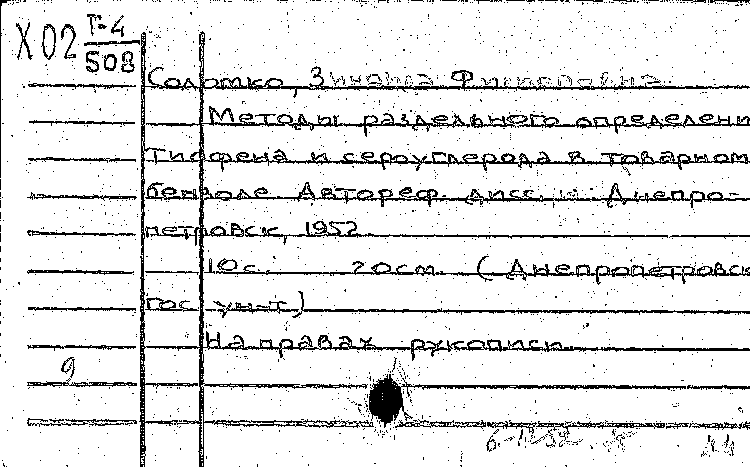 Х02 Т-4
508
Солотко, Зинаида
Методы раздельного определени
тиофена и сероуглерода в товарном
бензоле Автореф. дисс. Днепро-
петровск, 1952
10с. 20см. (Днепропетровск
гос. ун-т)
На правах рукописи.
9